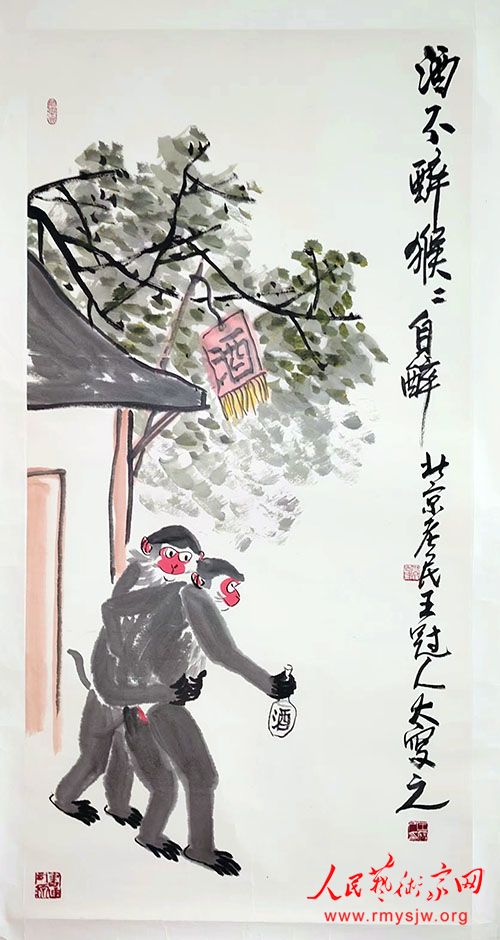 酒不醉猴〻自醉
北京居民王冠人大写之
酒
酒
人民藝術家网
www.rmysjw.org